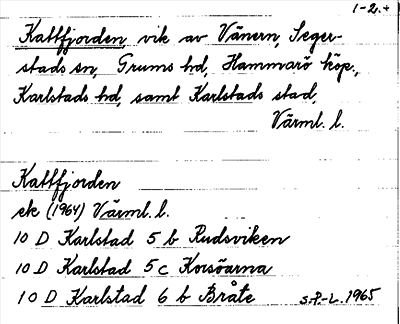 1-2.+
Kattfjorden, vik av Vänern, Seger-
stads sn, Grums hd, Hammarö köp.,
Karlstads hd, samt Karlstads stad,
Värml. l.
Kattfjorden
ek (1964) Värml. l.
10 D Karlstad 5 b Rudsviken
10 D Karlstad 5 c Korsöarna
10 D Karlstad 6 b Bråte S.P.-L. 1965